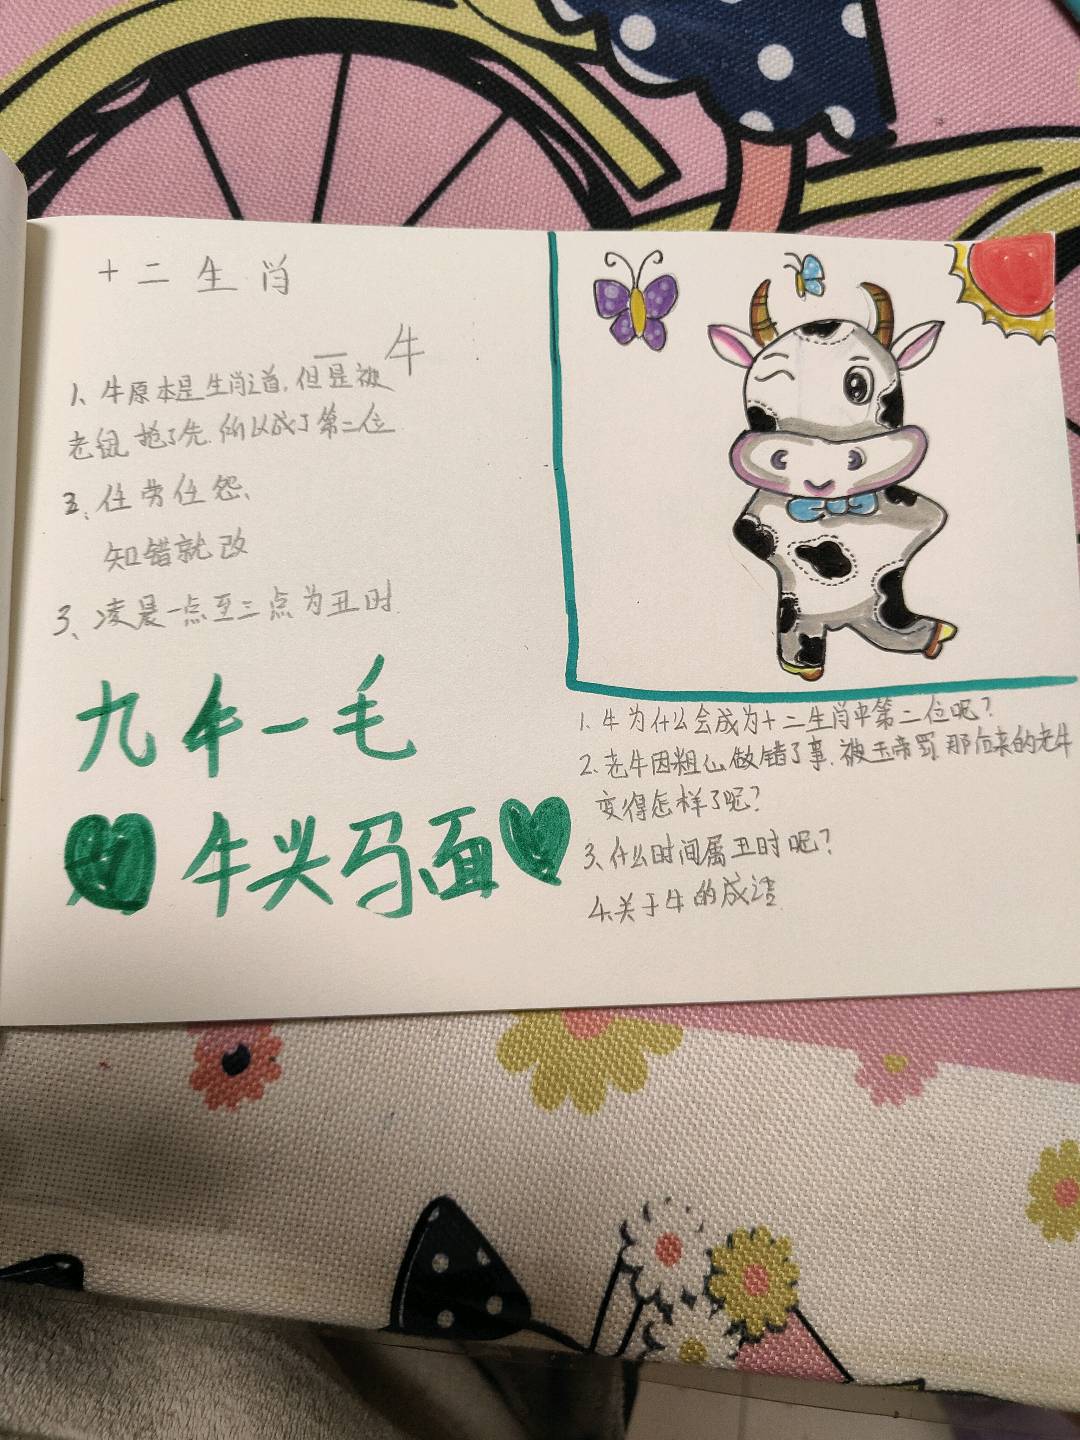 十二生肖
一牛
1、牛原本是生肖之首,但是被
老鼠抢了先.所以成了第二位
2、任劳任怨、
知错就改
3、凌晨一点至三点为丑时.
九牛一毛
牛头马面
1.牛为什么会成为十二生肖中第二位呢?
2.老牛因粗心做错了事.被玉帝罚,那后来的老牛
变得怎样了呢?
3、什么时间属丑时呢?
4.关于牛的成语.